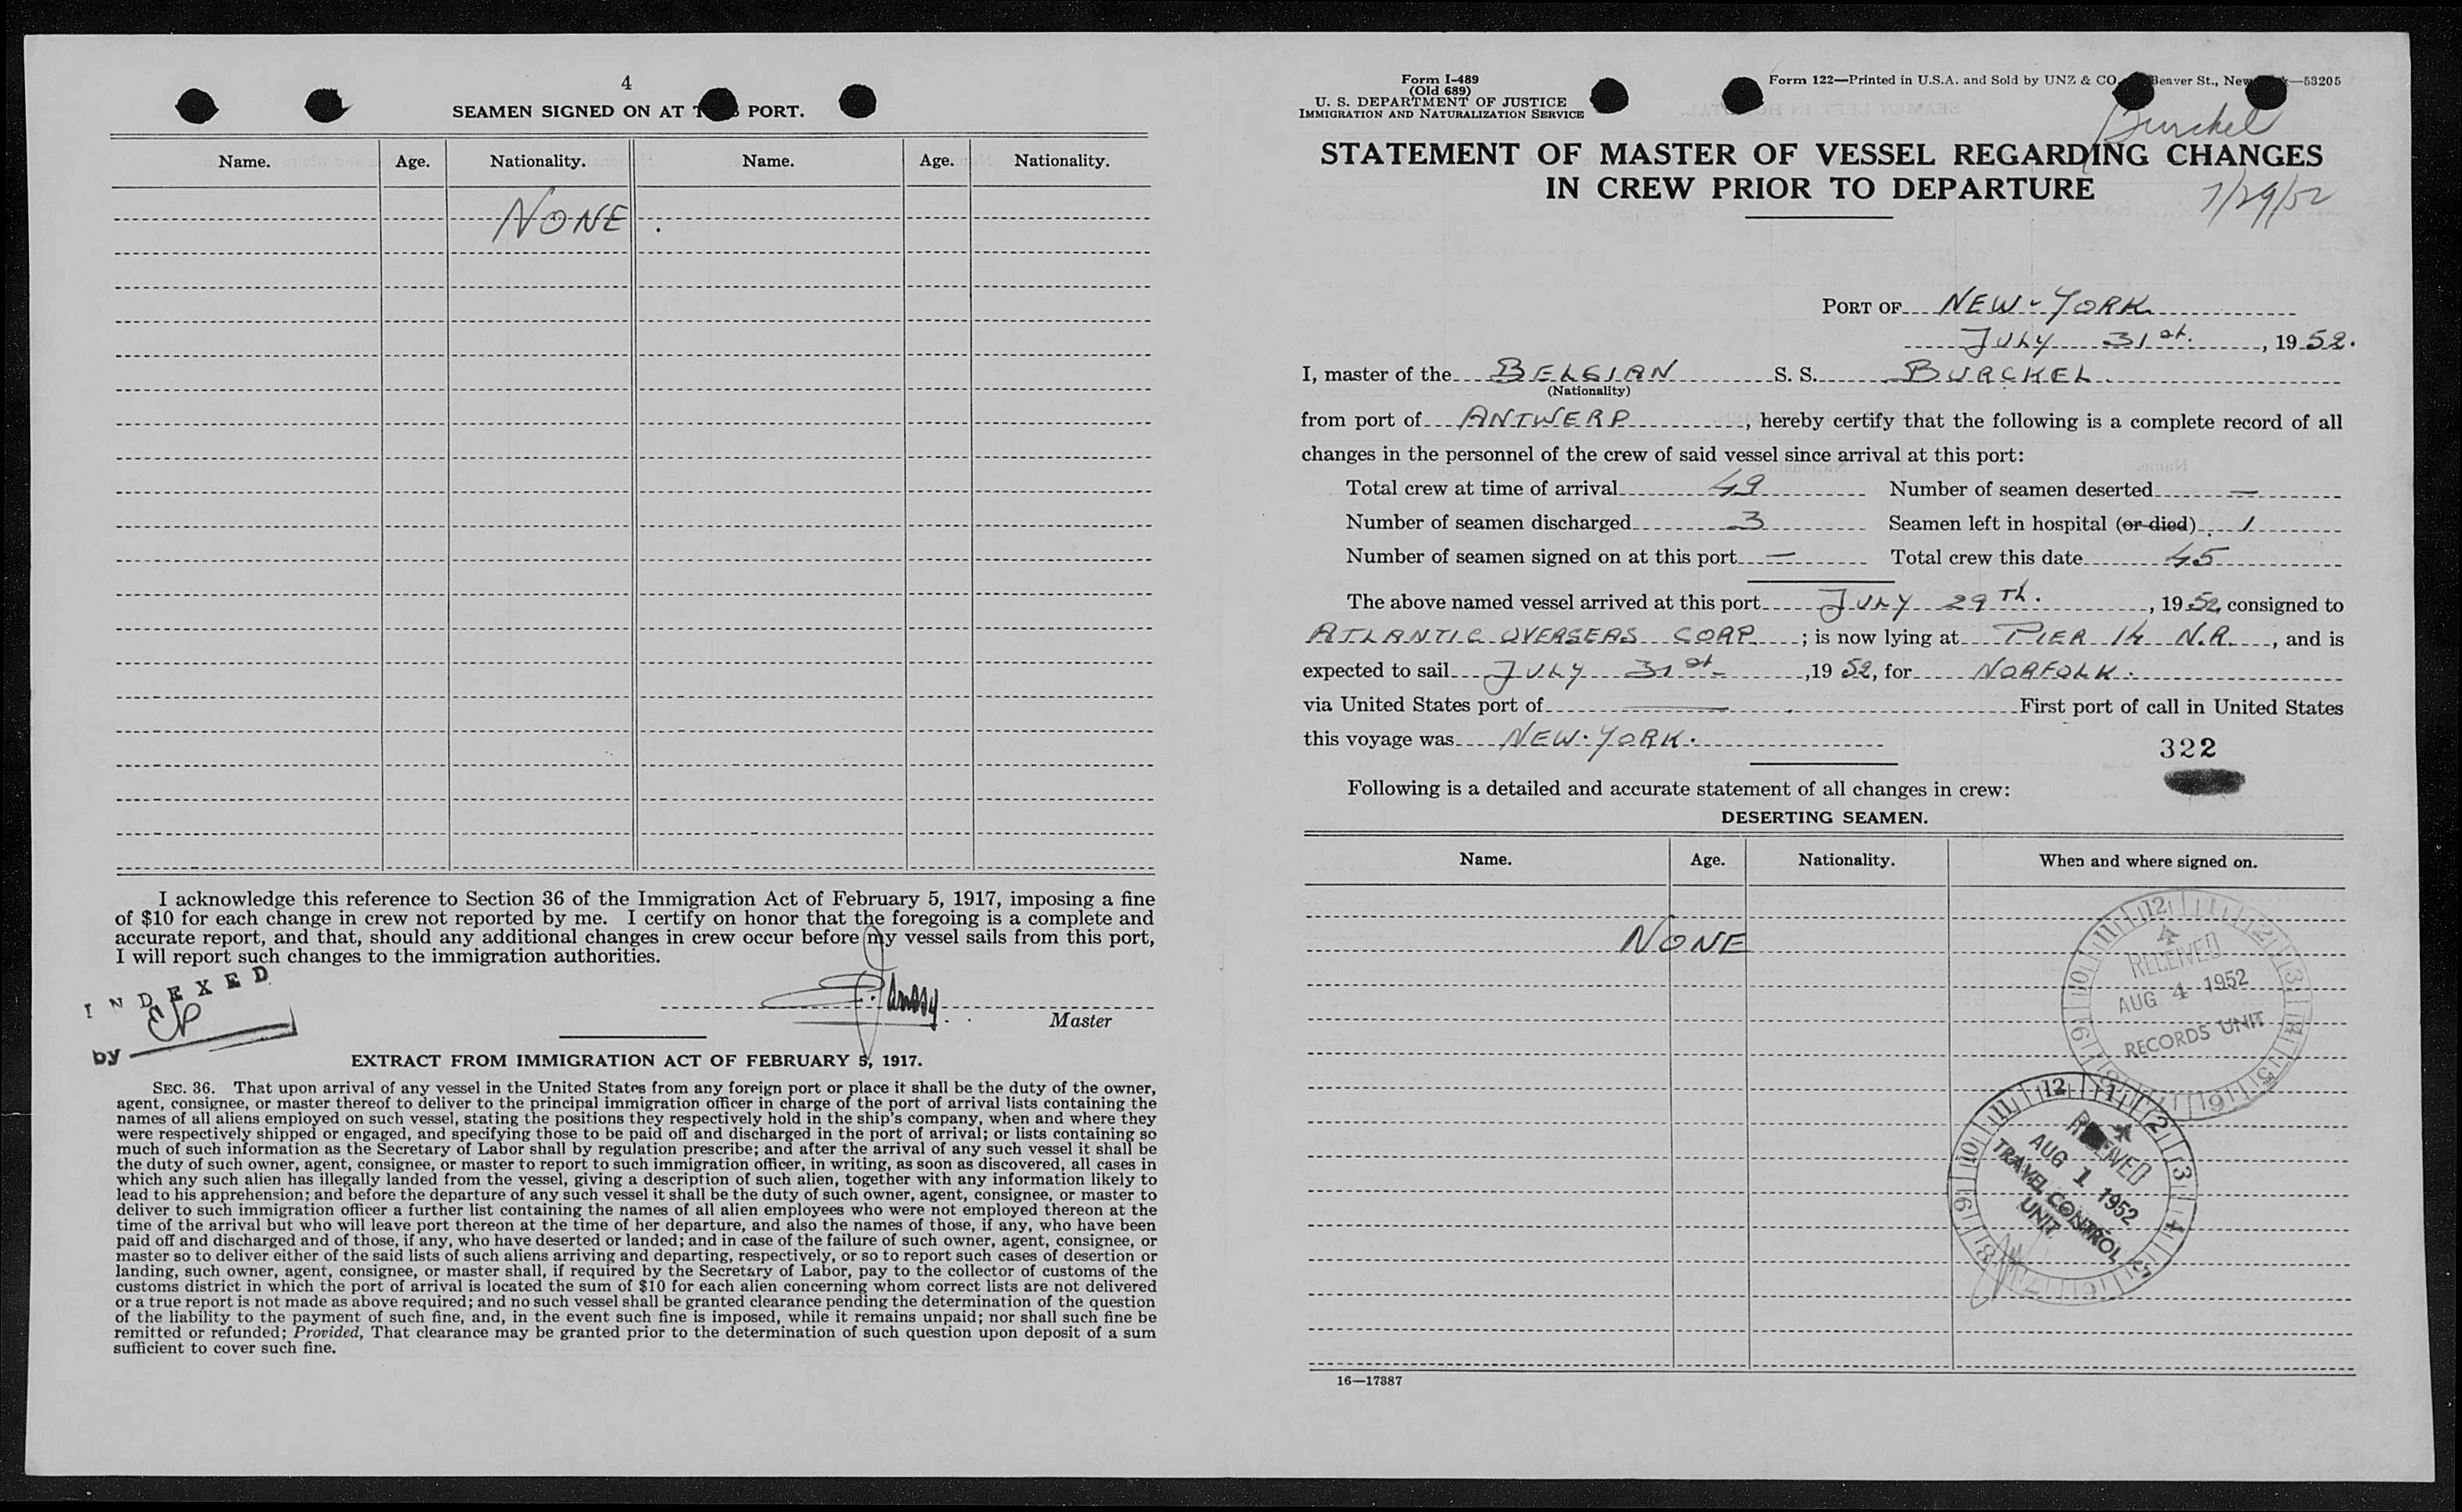 4
SEAMEN SIGNED ON AT PORT.
Name. Age. Nationality. Name. Age. Nationality.
NONE .
I acknowledge this reference to Section 36 of the Immigration Act of February 5, 1917, imposing a fine
of $10 for each change in crew not reported by me. I certify on honor that the foregoing is a complete and
accurate report, and that, should any additional changes in crew occur before my vessel sails from this port,
I will report such changes to the immigration authorities.
INDEXED
by
Master
EXTRACT FROM IMMIGRATION ACT OF FEBRUARY 5, 1917.
SEC. 36. That upon arrival of any vessel in the United States from any foreign port or place it shall be the duty of the owner,
agent, consignee, or master thereof to deliver to the principal immigration officer in charge of the port of arrival lists containing the
names of all aliens employed on such vessel, stating the positions they respectively hold in the ship's company, when and where they
were respectively shipped or engaged, and specifying those to be paid off and discharged in the port of arrival; or lists containing so
much of such information as the Secretary of Labor shall by regulation prescribe; and after the arrival of any such vessel it shall be
the duty of such owner, agent, consignee, or master to report to such immigration officer, in writing, as soon as discovered, all cases in
which any such alien has illegally landed from the vessel, giving a description of such alien, together with any information likely to
lead to his apprehension; and before the departure of any such vessel it shall be the duty of such owner, agent, consignee, or master to
deliver to such immigration officer a further list containing the names of all alien employees who were not employed thereon at the
time of the arrival but who will leave port thereon at the time of her departure, and also the names of those, if any, who have been
paid off and discharged and of those, if any, who have deserted or landed; and in case of the failure of such owner, agent, consignee, or
master so to deliver either of the said lists of such aliens arriving and departing, respectively, or so to report such cases of desertion or
landing, such owner, agent, consignee, or master shall, if required by the Secretary of Labor, pay to the collector of customs of the
customs district in which the port of arrival is located the sum of $10 for each alien concerning whom correct lists are not delivered
or a true report is not made as above required; and no such vessel shall be granted clearance pending the determination of the question
of the liability to the payment of such fine, and, in the event such fine is imposed, while it remains unpaid; nor shall such fine be
remitted or refunded; Provided, That clearance may be granted prior to the determination of such question upon deposit of a sum
sufficient to cover such fine.
Form I-489
(Old 689)
U. S. DEPARTMENT OF JUSTICE
IMMIGRATION AND NATURALIZATION SERVICE
Form 122—Printed in U.S.A. and Sold by UNZ & CO. Beaver St., New —53205
Burckel
STATEMENT OF MASTER OF VESSEL REGARDING CHANGES
IN CREW PRIOR TO DEPARTURE
7/29/52
PORT OF NEW-YORK
JULY 31st. , 19 52.
I, master of the BELGIAN S. S. BURCKEL
(Nationality)
from port of ANTWERP, hereby certify that the following is a complete record of all
changes in the personnel of the crew of said vessel since arrival at this port:
Total crew at time of arrival 49 Number of seamen deserted —
Number of seamen discharged 3 Seamen left in hospital (or died) 1
Number of seamen signed on at this port — Total crew this date 45
The above named vessel arrived at this port JULY 29Th. , 1952, consigned to
ATLANTIC OVERSEAS CORP ; is now lying at PIER 14 N.R. , and is
expected to sail JULY 31st ,19 52, for NORFOLK.
via United States port of — First port of call in United States
this voyage was NEW-YORK.
322
Following is a detailed and accurate statement of all changes in crew:
DESERTING SEAMEN.
Name. Age. Nationality. When and where signed on.
NONE
RECEIVED
AUG 4 1952
RECORDS UNIT
RECEIVED
AUG 1 1952
TRAVEL CONTROL
UNIT
16—17387